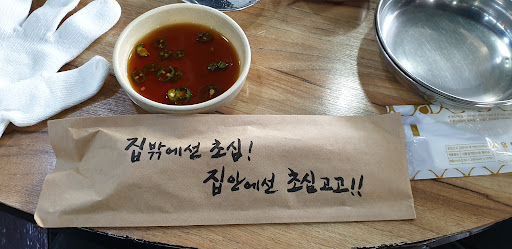 집밖에선 초심!
집안에선 초심고고!!